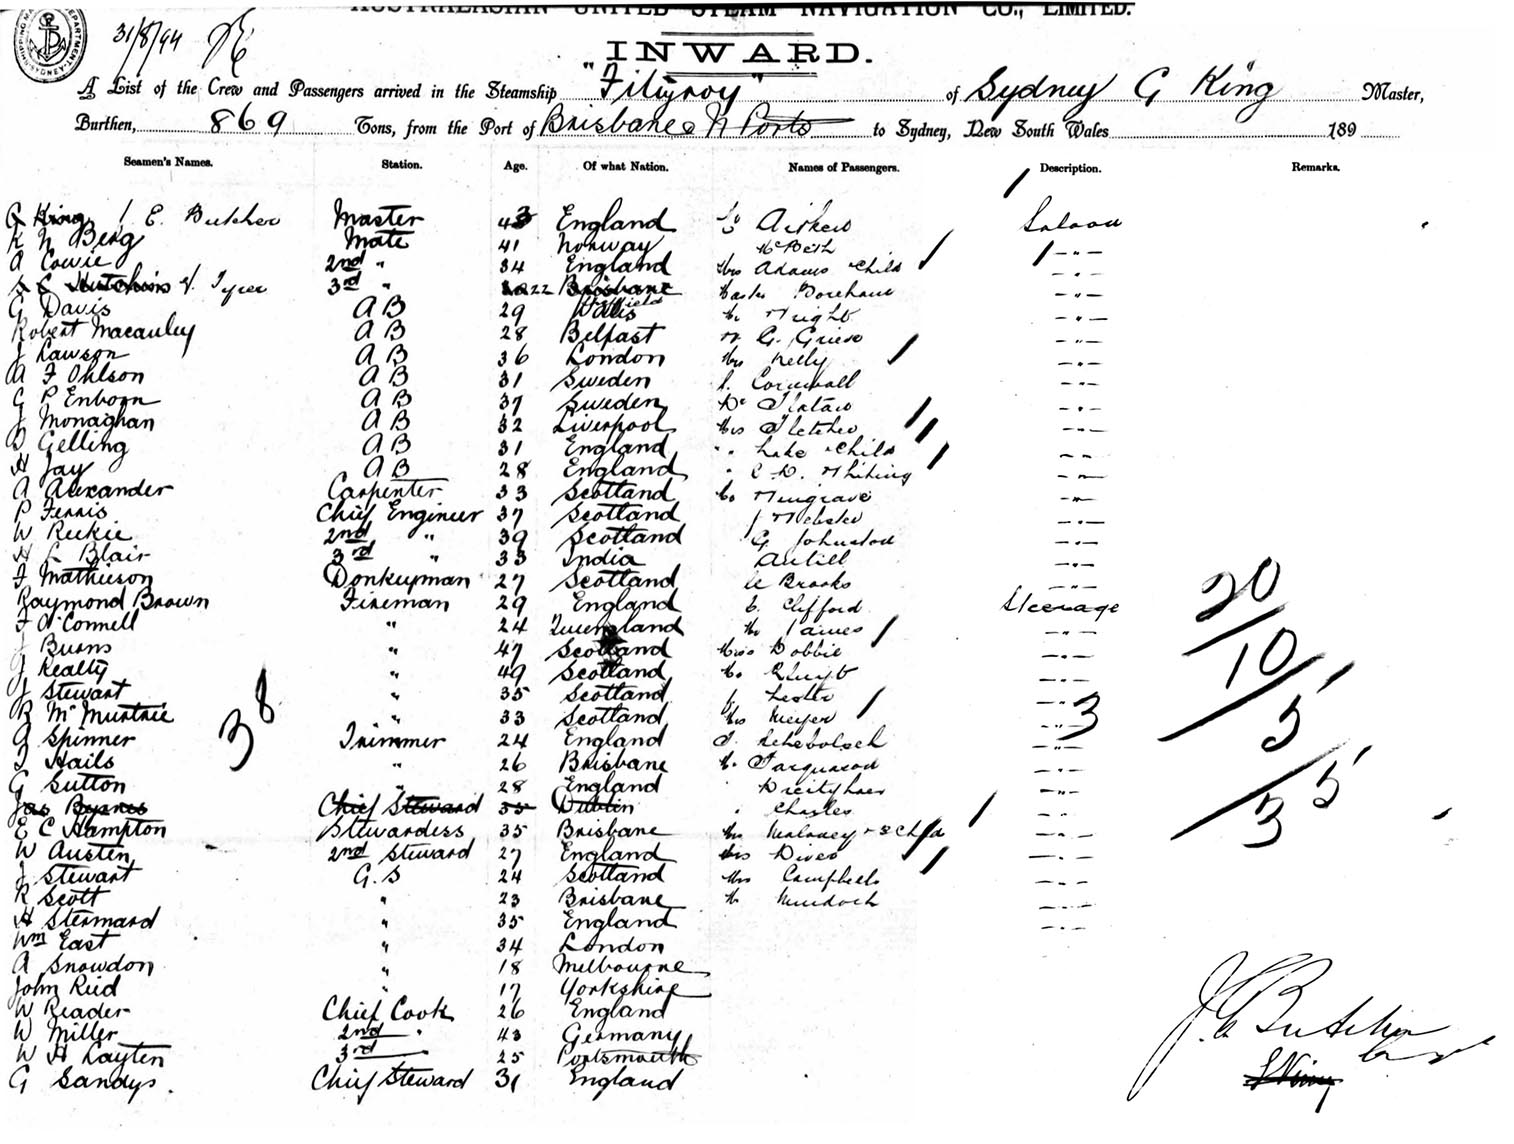 AUSTRALASIAN UNITED STEAM NAVIGATION CO., LIMITED.
31/8/94
INWARD.
A List of the Crew and Passengers arrived in the Steamship "Fitzroy" of Sydney G King Master,
Burthen, 869 Tons, from the Port of Brisbane & N Ports to Sydney, New South Wales 189
Seamen's Names. Station. Age. Of what Nation. Names of Passengers. Description. Remarks.
G King J. E. Butcher Master 43 England Aitken Saloon
K N Berg Mate 41 Norway McBeth -"-
A Cowie 2nd " 34 England Mrs Adams & Child -"-
S C Hutchins V. Tyrer 3rd " 22 Brisbane Boreham -"-
G Davis A B 29 Wales Wright -"-
Robert Macauley A B 28 Belfast G. Grieve -"-
J Lawson A B 36 London Mrs Kelly -"-
A F Ohlson A B 31 Sweden Cornwall -"-
G P Enborn A B 37 Sweden Dr Flatau -"-
J Monaghan A B 32 Liverpool Mrs Fletcher -"-
D Gelling A B 31 England " Lake & Child -"-
H Jay A B 28 England " C D. Whiting -"-
A Alexander Carpenter 33 Scotland Musgrave -"-
P Ferris Chief Engineer 37 Scotland J Webster -"-
W Reekie 2nd " 39 Scotland G Johnston -"-
H L Blair 3rd " 33 India Antill -"-
F Mathieson Donkeyman 27 Scotland Brooks -"-
Raymond Brown Fireman 29 England C. Clifford Steerage
F O'Connell " 24 Queensland James -"-
J Burns " 47 Scotland Miss Dobbie -"-
J Realty " 49 Scotland -"-
J Stewart " 35 Scotland J. Lester -"-
R McMurtrie " 33 Scotland Mrs Meyer -"- 3
G Spinner Trimmer 24 England -"-
T Hails " 26 Brisbane Farquason -"-
G Sutton " 28 England -"-
Jas Byrnes Chief Steward 35 Dublin " Charles
E C Hampton Stewardess 35 Brisbane Mrs Maloney & 3 Chld -"-
W Austen 2nd Steward 27 England Mrs Dives -"-
J Stewart G.S 24 Scotland Mrs Campbell -"-
R Scott " 23 Brisbane Murdoch -"-
H Stermard " 35 England -"-
Wm East " 34 London
A Snowdon " 18 Melbourne
John Reid " 17 Yorkshire
W Reader Chief Cook 26 England
W Miller 2nd " 43 Germany
W H Layten 3rd 25 Portsmouth
G Sandys Chief Steward 31 England
38
20
10
5
35
J. E. Butcher